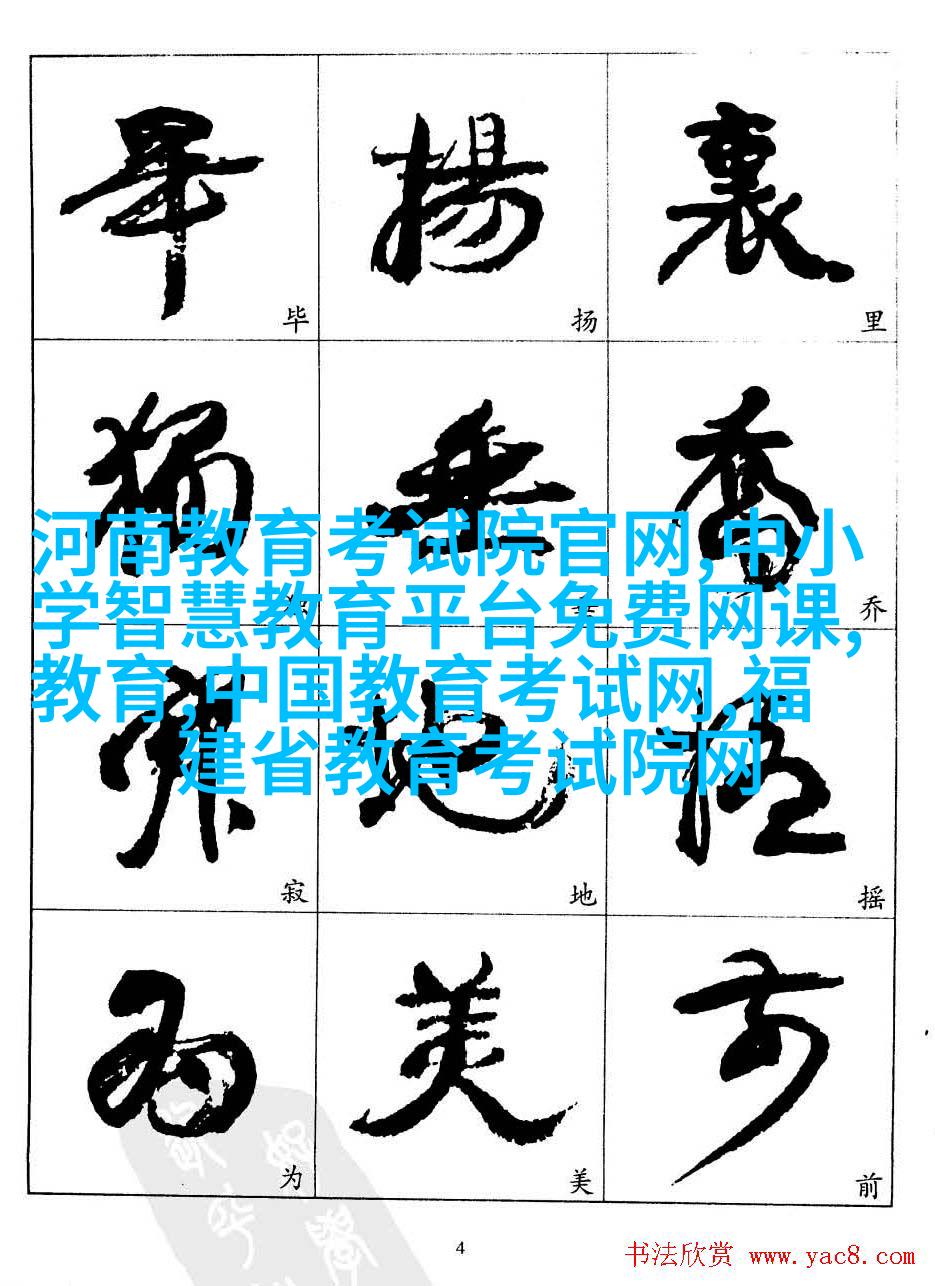 畢 揚 裏
毕 扬 里
獨 垂 喬
乔
河南教育考试院官网,中小
学智慧教育平台免费网课,
教育,中国教育考试网,福
建省教育考试院网
寂 地 摇
寂 地 摇
为 美 前
为 美 前
4
书法欣赏 www.yac8.com